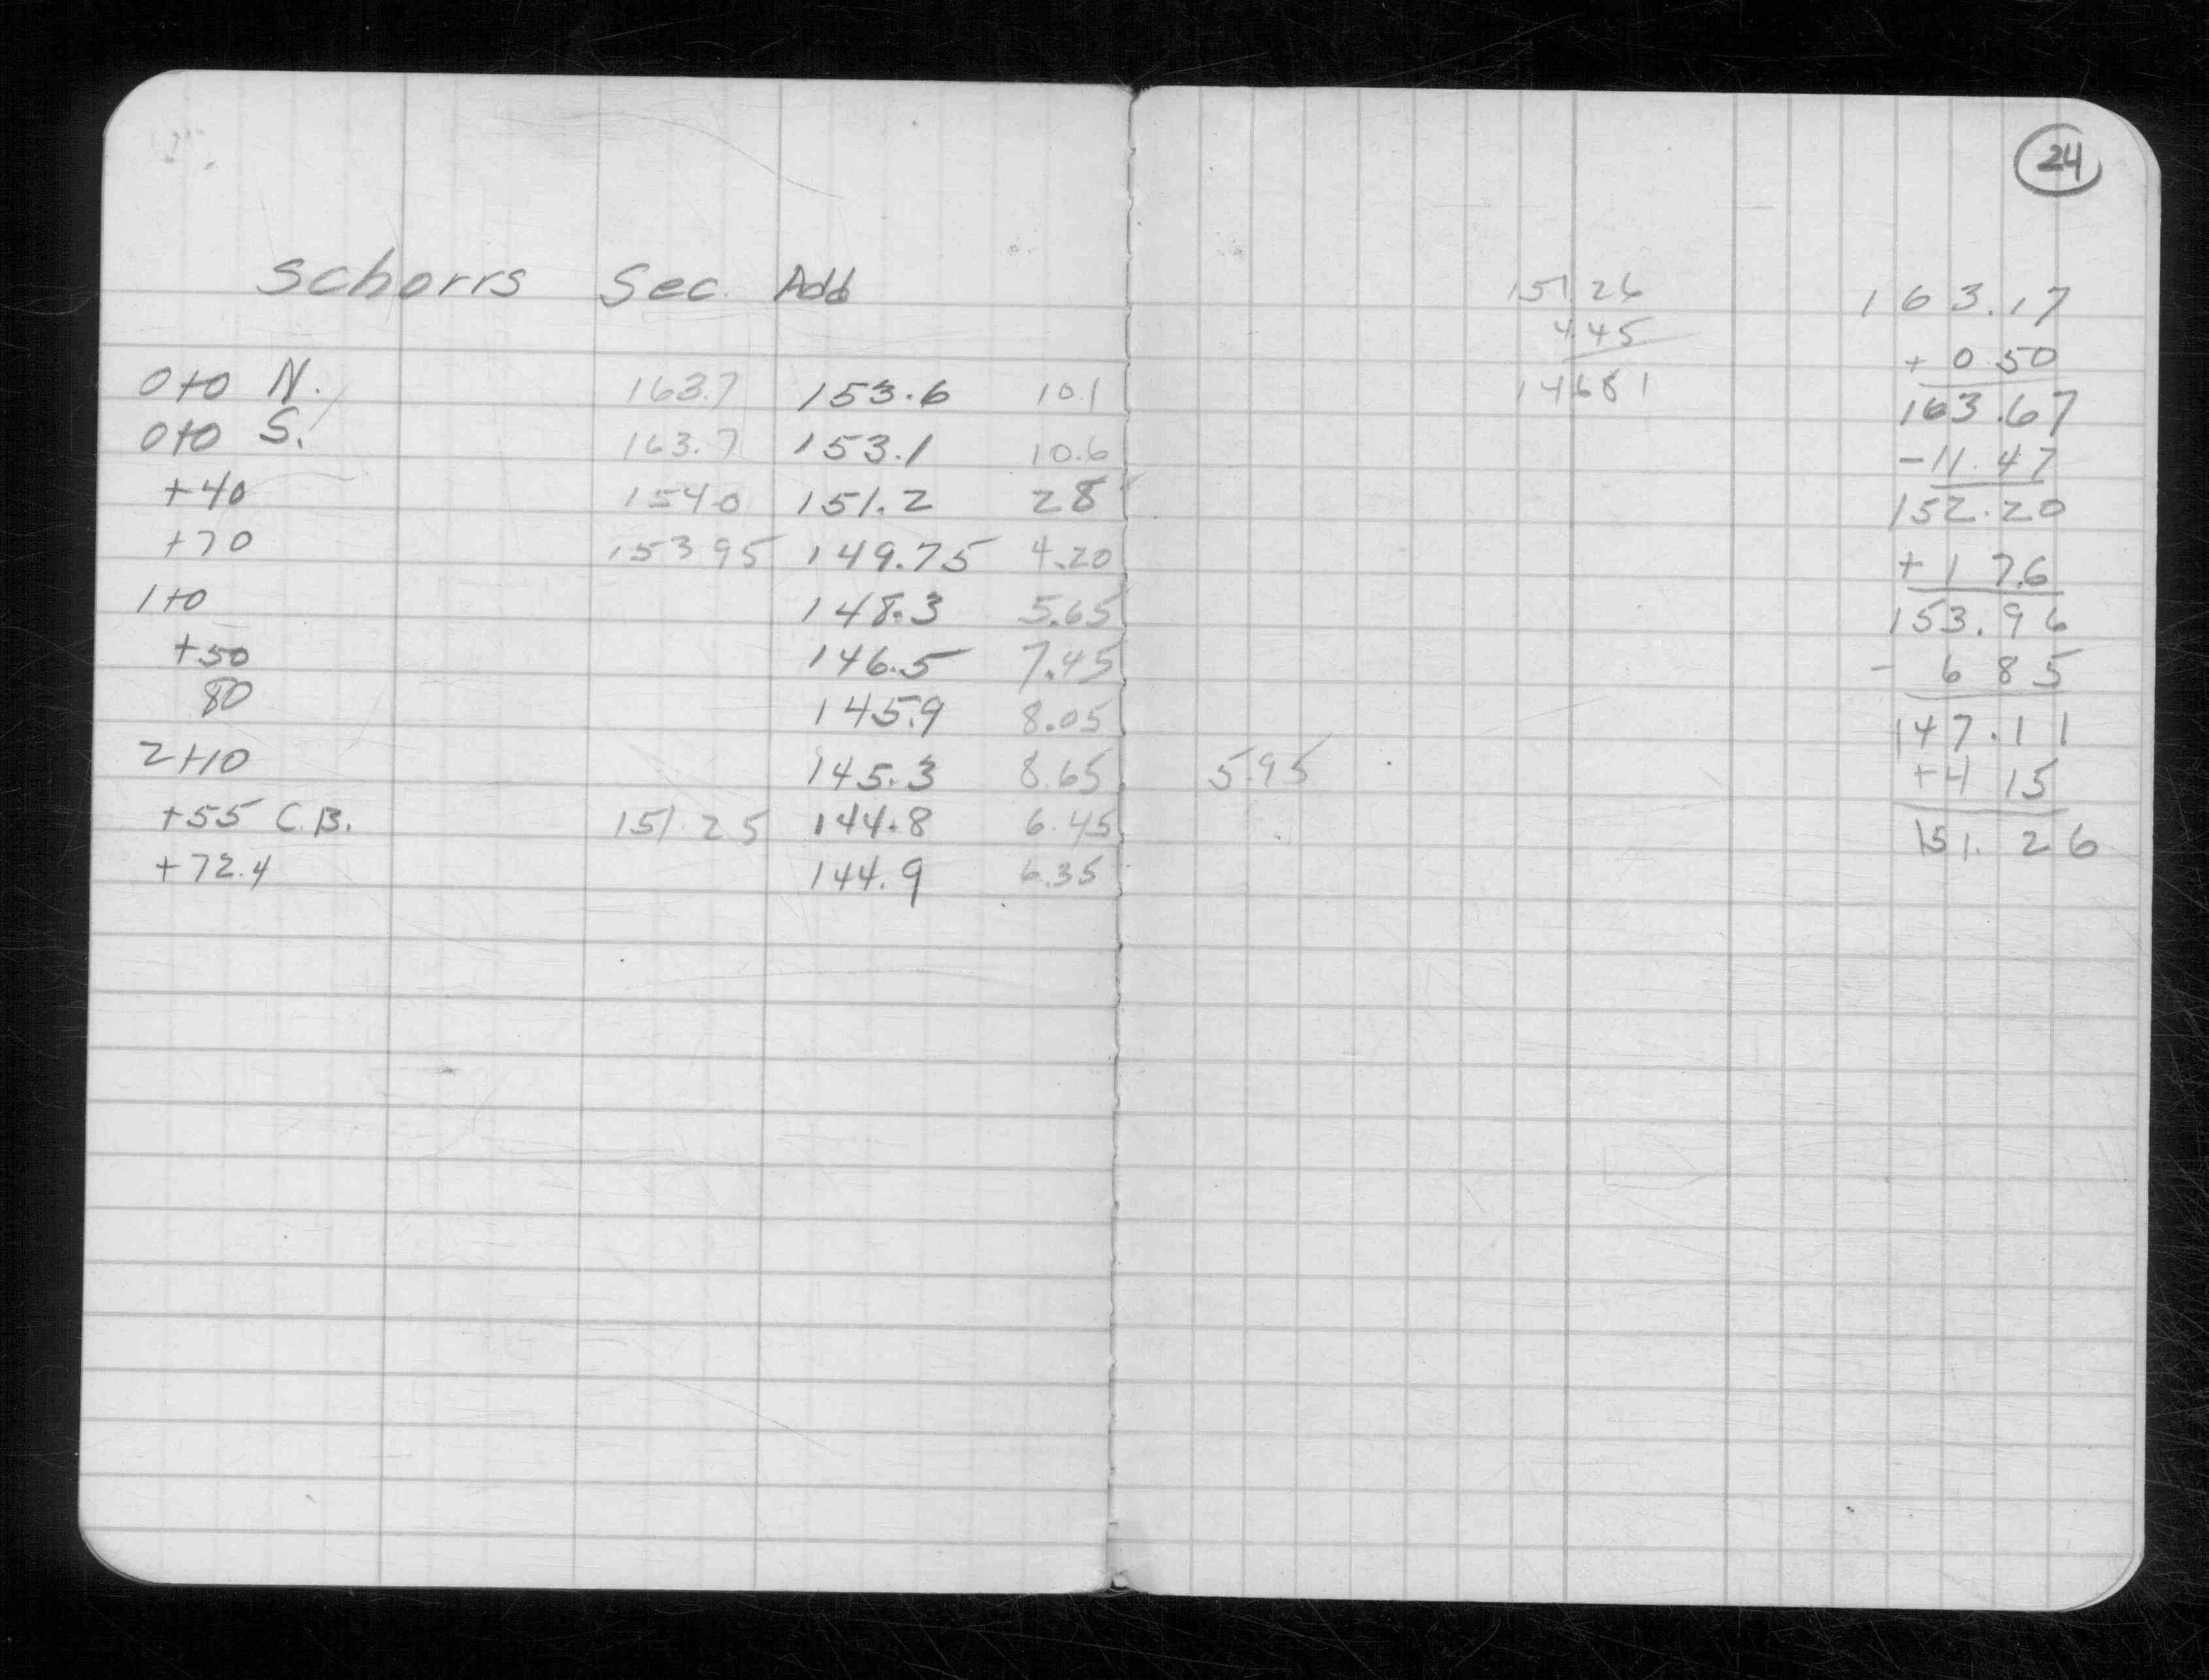 Schorrs Sec. Add
0+0 N. 163.7 153.6 10.1
0+0 S. 163.7 153.1 10.6
+40 154.0 151.2 28
+70 153 95 149.75 4.20
1+0 148.3 5.65
+50 146.5 7.45
80 145.9 8.05
2+10 145.3 8.65
+55 C.B. 151.25 144.8 6.45
+72.4 144.9 6.35
24
5.95
151.26
4.45
146 81
163.17
+ 0.50
163.67
-11.47
152.20
+1 76
153.96
- 6 85
147.11
+4 15
151.26